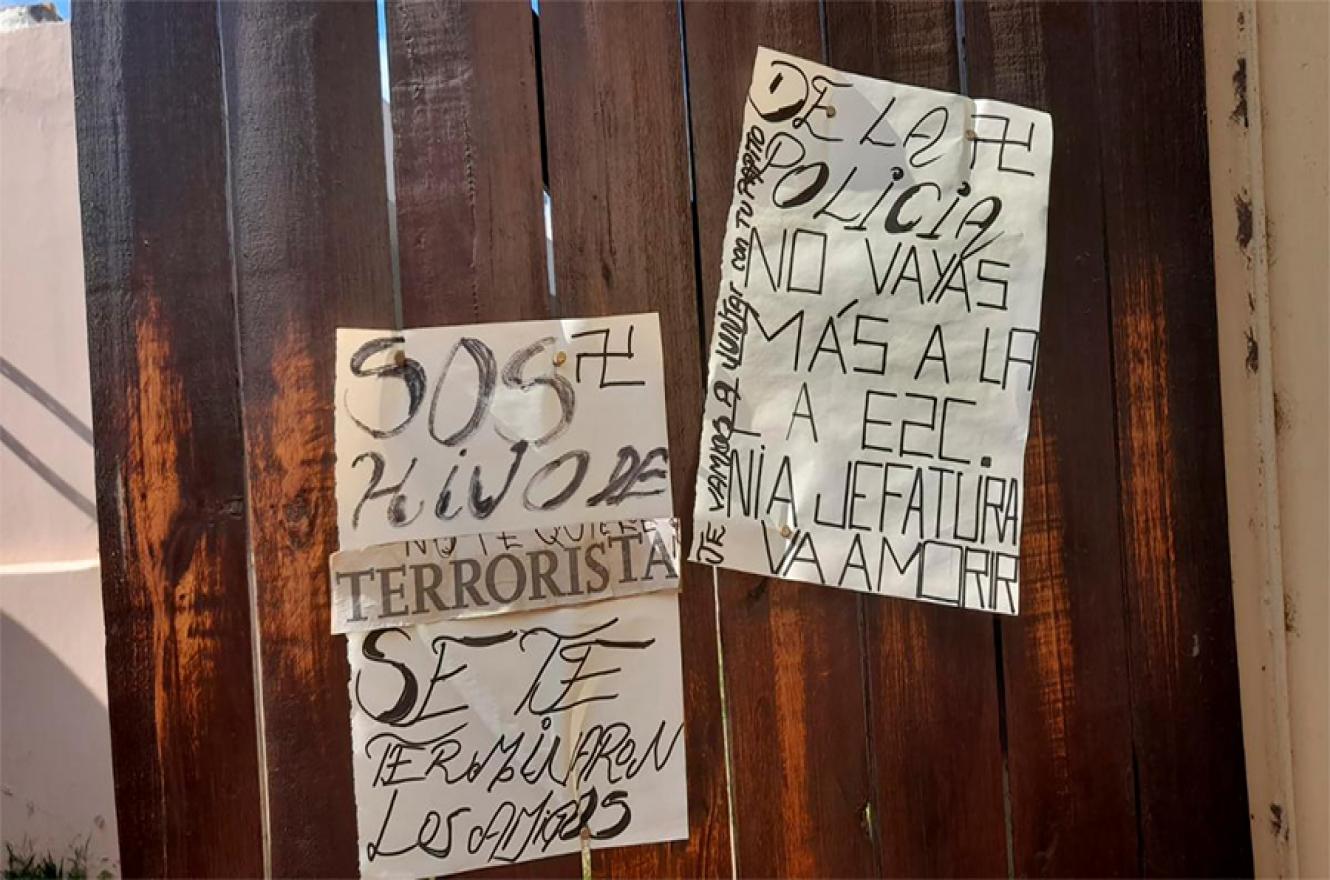 SOS
HIJO DE
NO TE QUIERE
TERRORISTA
SE TE
TERMINARON
LOS AMIGOS
DE LA
POLICIA
NO VAYAS
MÁS A LA
LA E2C.
NI A JEFATURA
VA A MORIR
TE VAMOS A JUNTAR con TU PAPITO